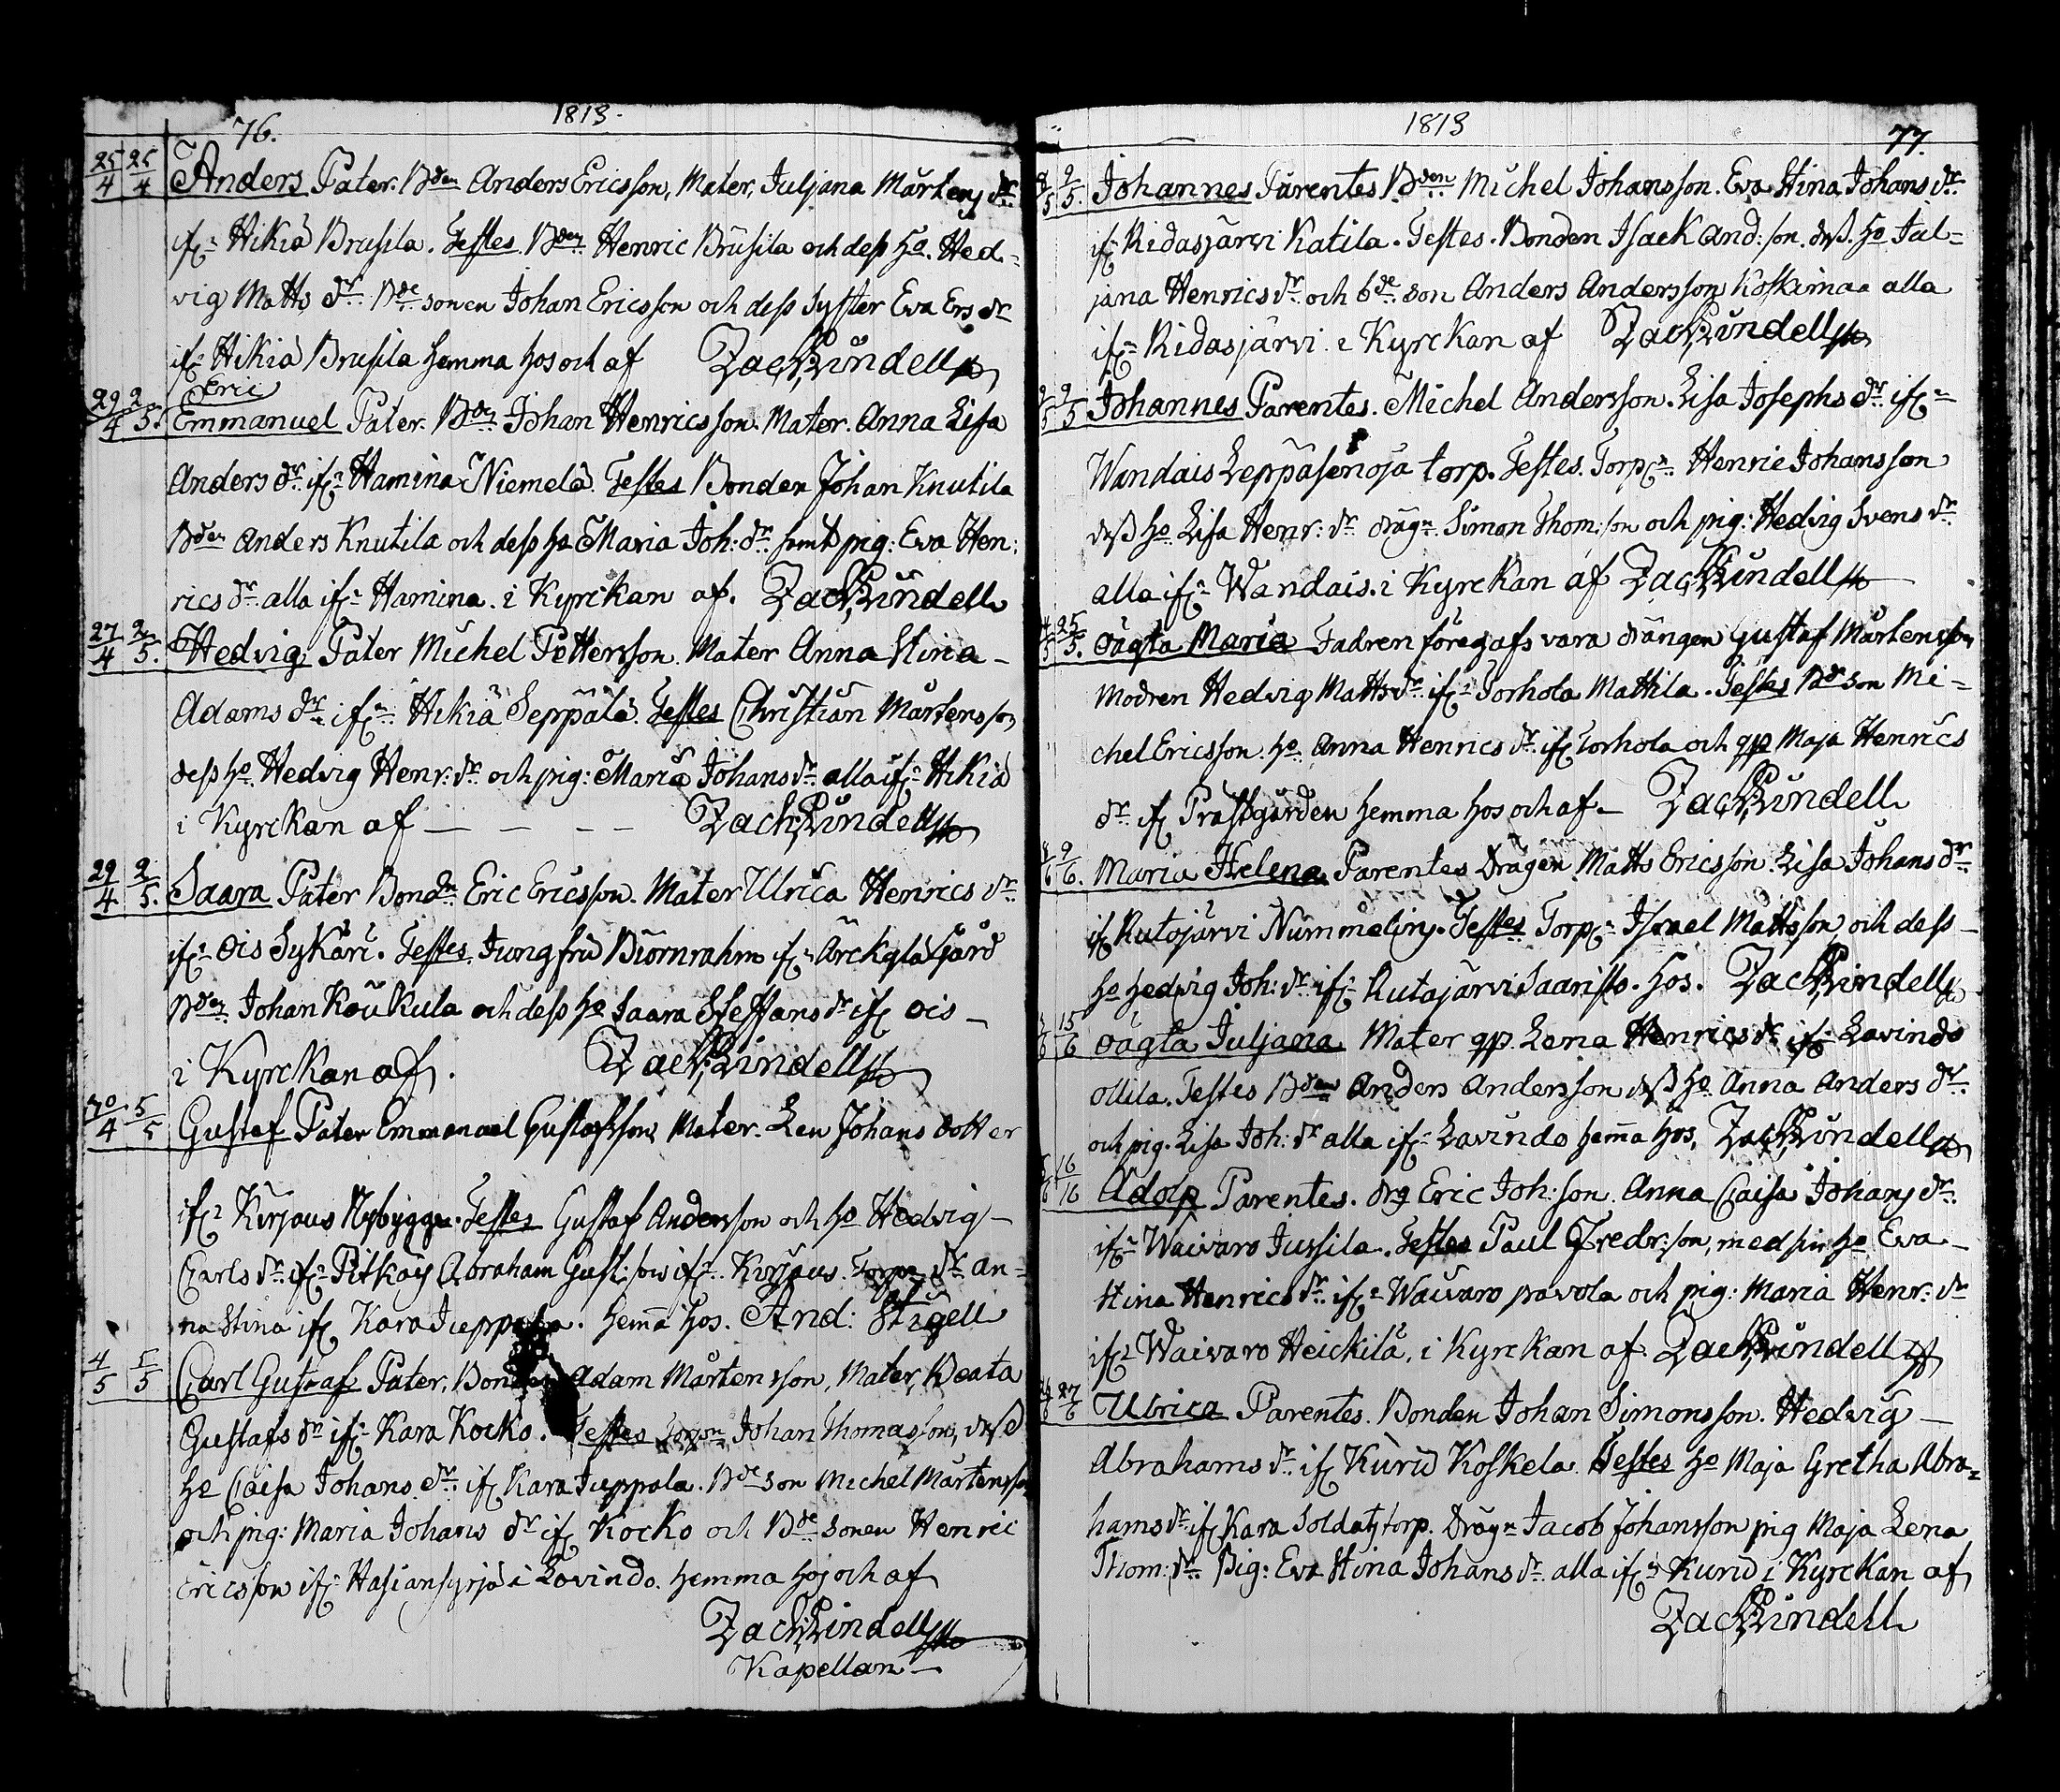 76. 1813.
25/4 25/4 Anders Pater. Bden Anders Ericsson, Mater, Juljana Mårtens dr
ifr: Hikiä Brusila. Testes Bden Henric Brusila och dess ho. Hed-
vig Matts dr. Bde sonen Johan Ericsson och dess syster Eva Ers dr
ifr: Hikiä Brusila hemma hos och af Zach: Lindell
Eric
29/4 2/5. Emmanuel Pater. Bden Johan Henricsson. Mater. Anna Lisa
Anders dr. ifr: Hamina Niemelä. Testes Bonden Johan Knutila
Bden Anders Knutila och dess ho Maria Joh: dr. samt pig: Eva Hen:
rics dr. alla ifr: Hamina. i Kyrckan af. Zach: Lindell
27/4 2/5. Hedvig Pater Michel Pettersson. Mater Anna Stina –
Adams dr. ifr: Hikiä Seppälä. Testes Christian Mårtensson
dess ho. Hedvig Henr: dr. och pig: Maria Johans dr. alla ifr: Hikiä
i Kyrckan af – – – – Zach: Lindell
29/4 2/5. Saara Pater Bondn Eric Ericsson. Mater Ulrica Henrics dr.
ifr: Ois Sykäri. Testes. Jungfru Biörnrahm ifr:
Bden Johan Koukula och dess ho Saara Steffans dr ifr Ois –
i Kyrckan af. Zach: Lindell
30/4 5/5 Gustaf Pater Emmanael Gustafsson, Mater. Len Johans dotter
ifr: Kirjaus Nybygge. Testes Gustaf Andersson och ho Hedvig –
Carls dr. ifr: Pitkäs Abraham Gust: son ifr: Kirjaus. Torpn dr. An-
na Stina ifr Kara Juppala. hema hos. And: Stigell
4/5 5/5 Carl Gustaf Pater, Bonden Adam Mårtensson, Mater, Beata
Gustafs dr ifr: Kara Kocko. Testes Torpn Johan Thomasson, dess
ho Caisa Johans dr. ifr Kara Juppala. Bde son Michel Mårtensson
och pig: Maria Johans dr ifr Kocko och Bde sonen Henric
Ericsson ifr: i Lovindo. hemma hos och af
Zach: Lindell
Kapellan –
1813 77.
9/5. Johannes Parentes Bden Michel Johansson. Eva Stina Johans dr.
ifr. Ridasjärvi Katila. Testes. Bonden Isack And: son. dess. ho Jul-
jana Henrics dr. och bde. son Anders Andersson Koskimaa alla
ifr: Ridasjärvi. i Kyrckan af Zach: Lindell
9/5 Johannes Parentes. Michel Andersson. Lisa Josephs dr. ifr:
Wandais Leppäsenoja torp. Testes. Torpn. Henric Johansson
dess ho. Lisa Henr: dr. dräg: Simon Thom: son och pig: Hedvig Svens dr.
alla ifr: Wandais. i Kyrckan af Zach: Lindell
25/5. oägta Maria Fadren föregafs vara drängen Gustaf Mårtensson
Modren Hedvig Matts dr. ifr: Torhola Mattila. Testes Bde son Mi-
chel Ericsson. ho. Anna Henrics dr. ifr Torhola och qp Maja Henrics
dr. ifr Prästgården hemma hos och af – Zach: Lindell
9/6. Maria Helena Parentes Drägen Matts Ericsson. Lisa Johans dr.
ifr Kutojärvi Nummelin. Testes. Torpr: Israel Mattsson, och dess –
ho hedvig Joh: dr. ifr: Kutajärvi Saaristo. hos. Zach: Lindell
15/6 oägta Juljana Mater qp. Lena Henrics dr. ifr: Lavindo
Ollila. Testes Bden Anders Andersson dess ho. Anna Anders dr.
och pig. Lisa Joh: dr alla ifr: Lavindo hema hos, Zach: Lindell
16/16 Adolp Parentes. drg Eric Joh: son. Anna Caisa Johans dr.
ifr: Waivaro Jussila. Testes Paul Fredr: son, med sin ho Eva –
Stina Henrics dr. ifr: Waivaro pavola och pig: Maria Henr: dr
ifr: Waivaro Heickilä, i Kyrckan af Zach: Lindell
27/6 Ulrica Parentes. Bonden Johan Simonsson. Hedvig –
Abrahams dr. ifr Kurid Koskela. Testes ho Maja Gretha Abra-
hams dr. ifr Kara Soldats torp. Drägn Jacob Johansson pig Maja Lena
Thom: dr. Pig: Eva Stina Johans dr. alla ifr: Kurid i Kyrckan af
Zach: Lindell